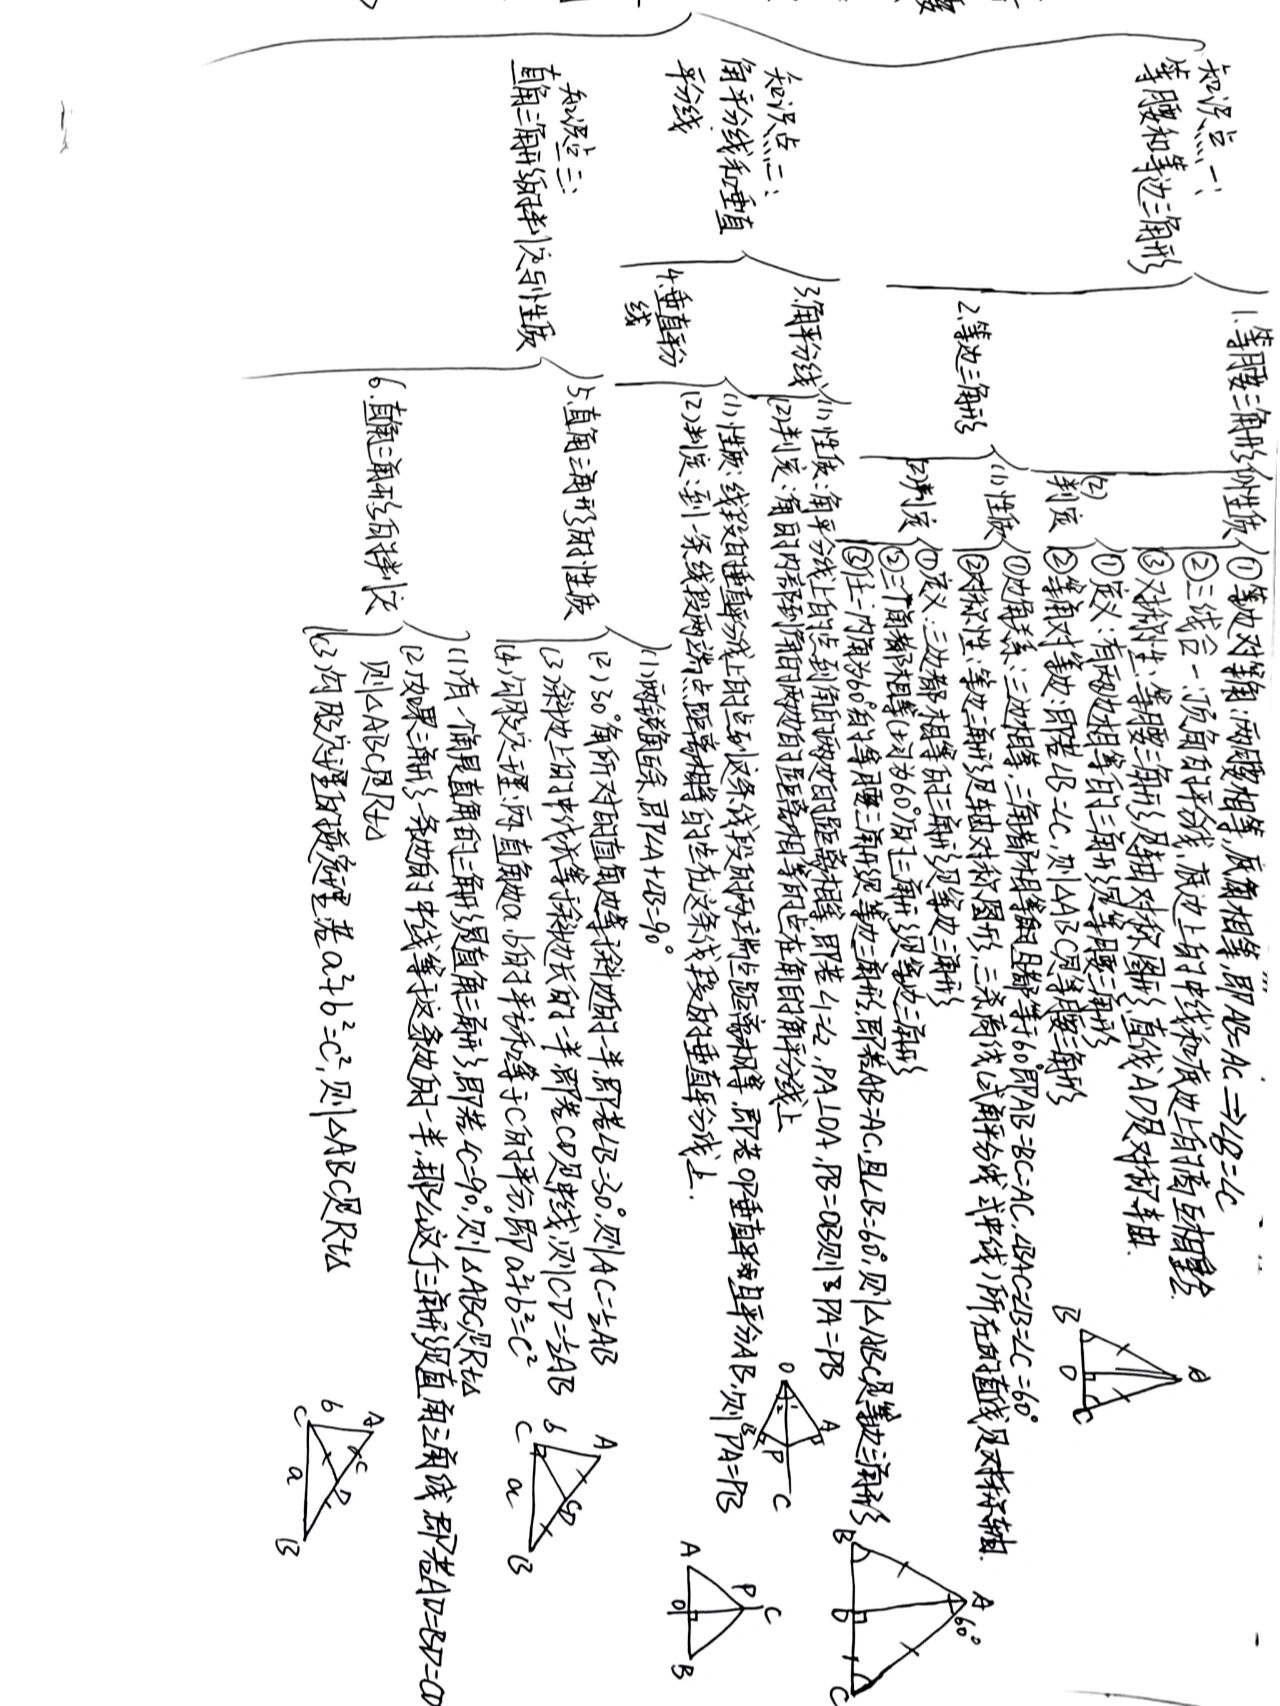 知识点一:
等腰和等边三角形
1.等腰三角形的性质
①等边对等角:两腰相等,底角相等,即AB=AC⇒∠B=∠C
②三线合一:顶角的平分线、底边上的中线和底边上的高互相重合.
③对称性:等腰三角形是轴对称图形,直线AD是对称轴.
(2)判定
①定义:有两边相等的三角形是等腰三角形
②等角对等边:即若∠B=∠C,则△ABC是等腰三角形
2.等边三角形
(1)性质
①边角关系:三边相等,三角都相等且都等于60°即AB=BC=AC,∠BAC=∠B=∠C=60°
②对称性:等边三角形是轴对称图形,三条高线(或角平分线或中线)所在的直线是对称轴.
(2)判定
①定义:三边都相等的三角形是等边三角形
②三个角都相等(均为60°)的三角形是等边三角形
③任一内角为60°的等腰三角形是等边三角形,即若AB=AC,且∠B=60°,则△ABC是等边三角形
知识点二:
角平分线和垂直
平分线
3.角平分线
(1)性质:角平分线上的点到角的两边的距离相等,即若∠1=∠2,PA⊥OA,PB=OB则PA=PB
(2)判定:角的内部到角的两边的距离相等的点在角的角平分线上
4.垂直平分
线
(1)性质:线段的垂直平分线上的点到这条线段的两端点距离相等,即若OP垂直且平分AB,则PA=PB
(2)判定:到一条线段两端点距离相等的点在这条线段的垂直平分线上.
知识点三:
直角三角形的判定与性质
5.直角三角形的性质
(1)两锐角互余,即∠A+∠B=90°
(2)30°角所对的直角边等于斜边的一半,即若∠B=30°,则AC=½AB
(3)斜边上的中线等于斜边长的一半,即若CD是中线,则CD=½AB
(4)勾股定理:两直角边a、b的平方和等于c的平方,即a²+b²=c²
6.直角三角形的判定
(1)有一个角是直角的三角形是直角三角形,即若∠C=90°,则△ABC是Rt△
(2)如果三角形一条边的中线等于这条边的一半,那么这个三角形是直角三角线 即若AD=BD=CD
则△ABC是Rt△
(3)勾股定理的逆定理:若a²+b²=c²,则△ABC是Rt△
A
B
D
C
A
60°
B
D
C
O
1
2
A
B
P
C
P
C
A
O
B
A
b
D
C
a
B
A
b
c
D
C
a
B